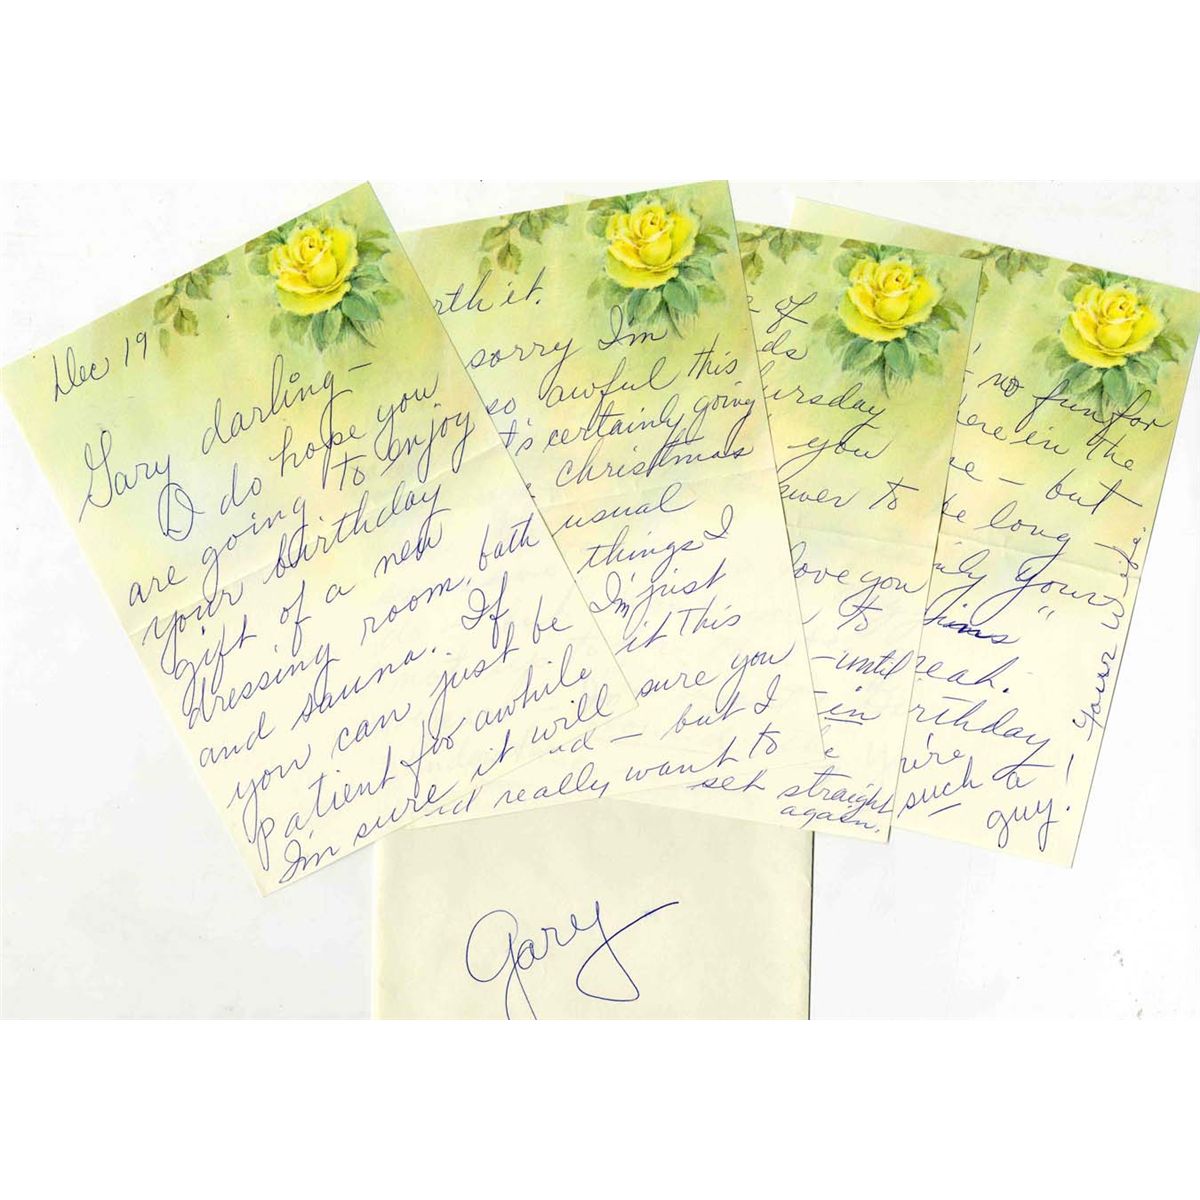 Dec 19
Gary darling -
I do hope you
are going to enjoy
your birthday
gift of a new
dressing room, bath
and sauna. If
you can just be
patient for awhile
I'm sure it will
rth it.
sorry I'm
so awful this
t's certainly going
christmas
usual
things I
I'm just
it this
sure you
d - but I
d really want to
of
ds
ursday
you
swer to
love you
to
- until
in
set straight
again.
no fun for
here in the
e - but
be long -
ly yours"
hims
yeah.
rthday
're
such a
guy!
Your wife
Gary